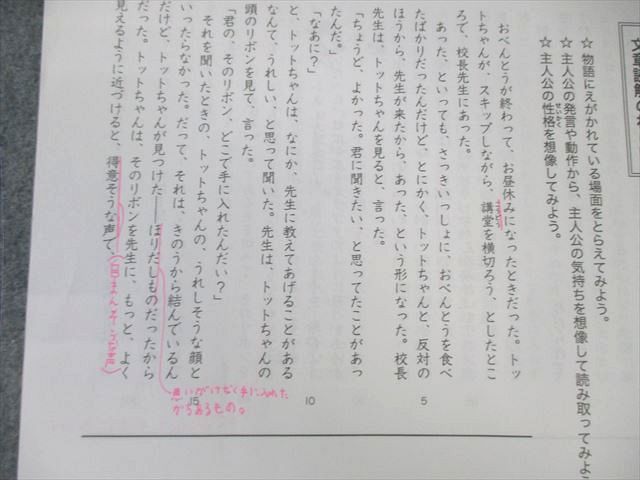 文章読解
☆ 物語にえがかれている場面をとらえてみよう。
☆ 主人公の発言や動作から、主人公の気持ちを想像して読み取ってみよ
☆ 主人公の性格を想像してみよう。
せいかく
おべんとうが終わって、お昼休みになったときだった。トッ
トちゃんが、スキップしながら、講堂を横切ろう、としたとこ
こうどう
ろで、校長先生にあった。
あった、といっても、さっきいっしょに、おべんとうを食べ
たばかりだったんだけど、とにかく、トットちゃんと、反対の
5
ほうから、先生が来たから、あった、という形になった。校長
先生は、トットちゃんを見ると、言った。
「ちょうど、よかった。君に聞きたい、と思ってたことがあっ
たんだ。」
「なあに？」
10
と、トットちゃんは、なにか、先生に教えてあげることがある
なんて、うれしい、と思って聞いた。先生は、トットちゃんの
頭のリボンを見て、言った。
「君の、そのリボン、どこで手に入れたんだい？」
それを聞いたときの、トットちゃんの、うれしそうな顔と
15
いったらなかった。だって、それは、きのうから結んでいるん
だけど、トットちゃんが見つけた――ほりだしものだったから
思いがけなく手に入れた
かちあるもの。
だった。トットちゃんは、そのリボンを先生に、もっと、よく
見えるように近づけると、得意そうな声で